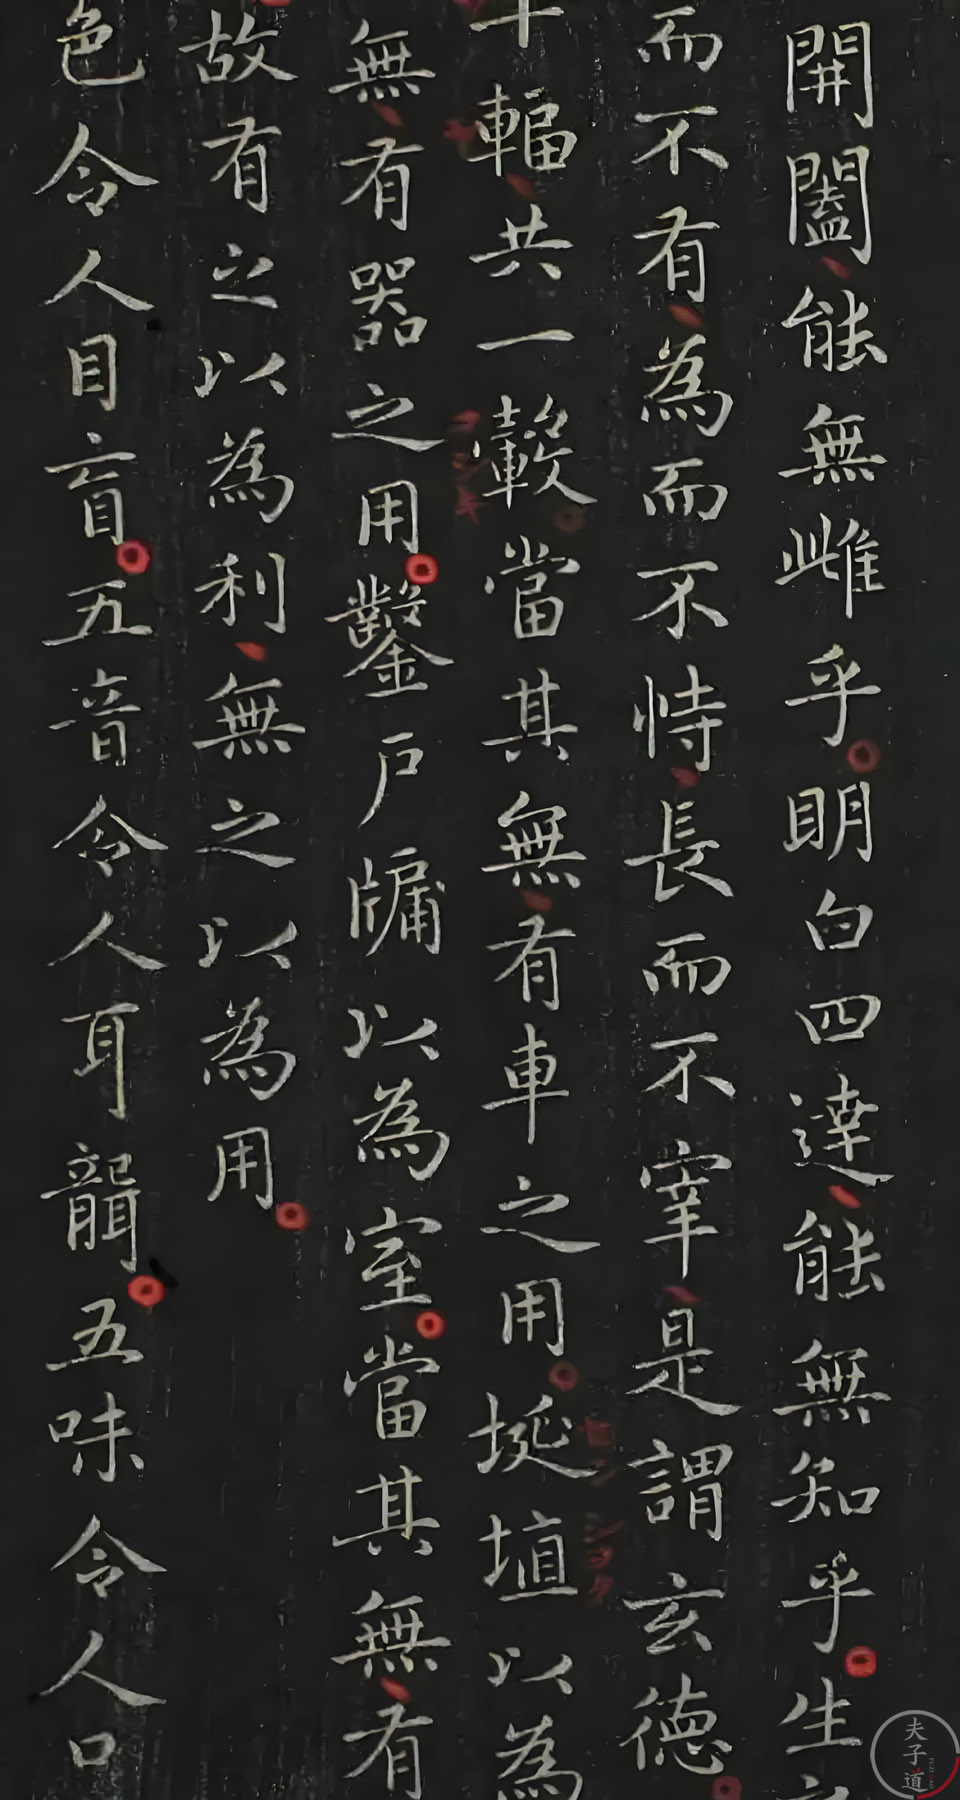 開闔能無雌乎明白四達能無知乎生
而不有為而不恃長而不宰是謂玄德
十輻共一轂當其無有車之用埏埴以為
無有器之用鑿戶牖以為室當其無有
故有之以為利無之以為用
色令人目盲五音令人耳聾五味令人口
夫子道